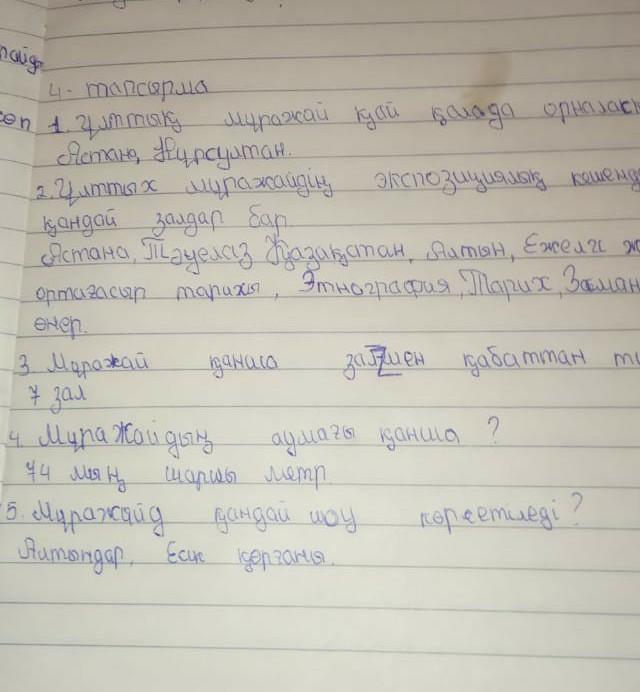 4. тапсырма
1. Ұлттық мұражай қай қалада орналасқ
Астана, Нұрсұлтан.
2. Ұлттых мұражайдің экспозициялық кешенд
қандай залдар бар
Астана, Тәуелсіз Қазақстан, Алтын, Ежелгі ж
ортағасыр тарихы, Этнография, Тарих, Заман
өнер.
3 Мұражай қанша залмен қабаттан т
7 зал
4. Мұражайдың аумағы қанша?
74 мың шаршы метр
5. Мұражайд қандай шоу көрсетіледі?
Алтындар, Есік қорғаны.